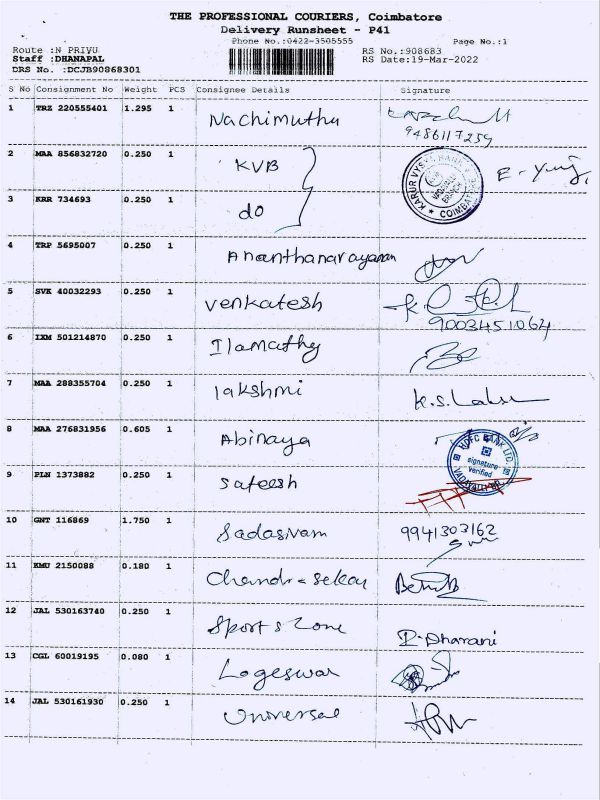 THE PROFESSIONAL COURIERS, Coimbatore
Delivery Runsheet - P41
Phone No.:0422-3505555
Page No.:1
Route :N PRIYU
RS No.:908683
Staff :DHANAPAL
RS Date:19-Mar-2022
DRS No. :DCJB90868301
S No Consignment No Weight PCS Consignee Details Signature
1 TRZ 220555401 1.295 1 Nachimuthu
9486117259
2 MAA 856832720 0.250 1 KVB
KARUR VYSYA BANK
COIMBATORE
3 KRR 734693 0.250 1 do
4 TRP 5695007 0.250 1 Ananthanarayanan
5 SVK 40032293 0.250 1 Venkatesh
9003451064
6 IXM 501214870 0.250 1 Ilamathy
7 MAA 288355704 0.250 1 lakshmi K.S. Laksh
8 MAA 276831956 0.605 1 Abinaya
HDFC BANK LTD.
signature
verified
9 PLN 1373882 0.250 1 Sateesh
10 GNT 116869 1.750 1 Sadasivam 9941303162
11 KMU 2150088 0.180 1 Chandra sekar
12 JAL 530163740 0.250 1 Sports Zone I. Dharani
13 CGL 60019195 0.080 1 Logeswar
14 JAL 530161930 0.250 1 Universal